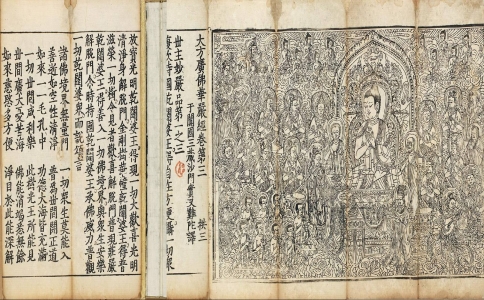 大方廣佛華嚴經卷第三 拱三
于闐國三藏沙門實叉難陀譯
世主妙嚴品第一之三
復次持國乾闥婆王得自在方便攝一切衆
放寶光明乾闥婆王得現一切大歡喜光明
清淨身解脫門金剛樹華幢乾闥婆王得普
滋榮一切樹令見者歡喜解脫門普現莊嚴
乾闥婆王得善入一切佛境界與衆生安樂
解脫門爾時持國乾闥婆王承佛威力普觀
一切乾闥婆衆而說頌言
諸佛境界無量門 一切衆生莫能入
善逝如空性清淨 普爲世間開正道
如來一一毛孔中 功德大海皆充滿
一切世間咸利樂 此樹光王所能見
世間廣大憂苦海 佛能消竭悉無餘
如來慈愍多方便 淨目於此能深解